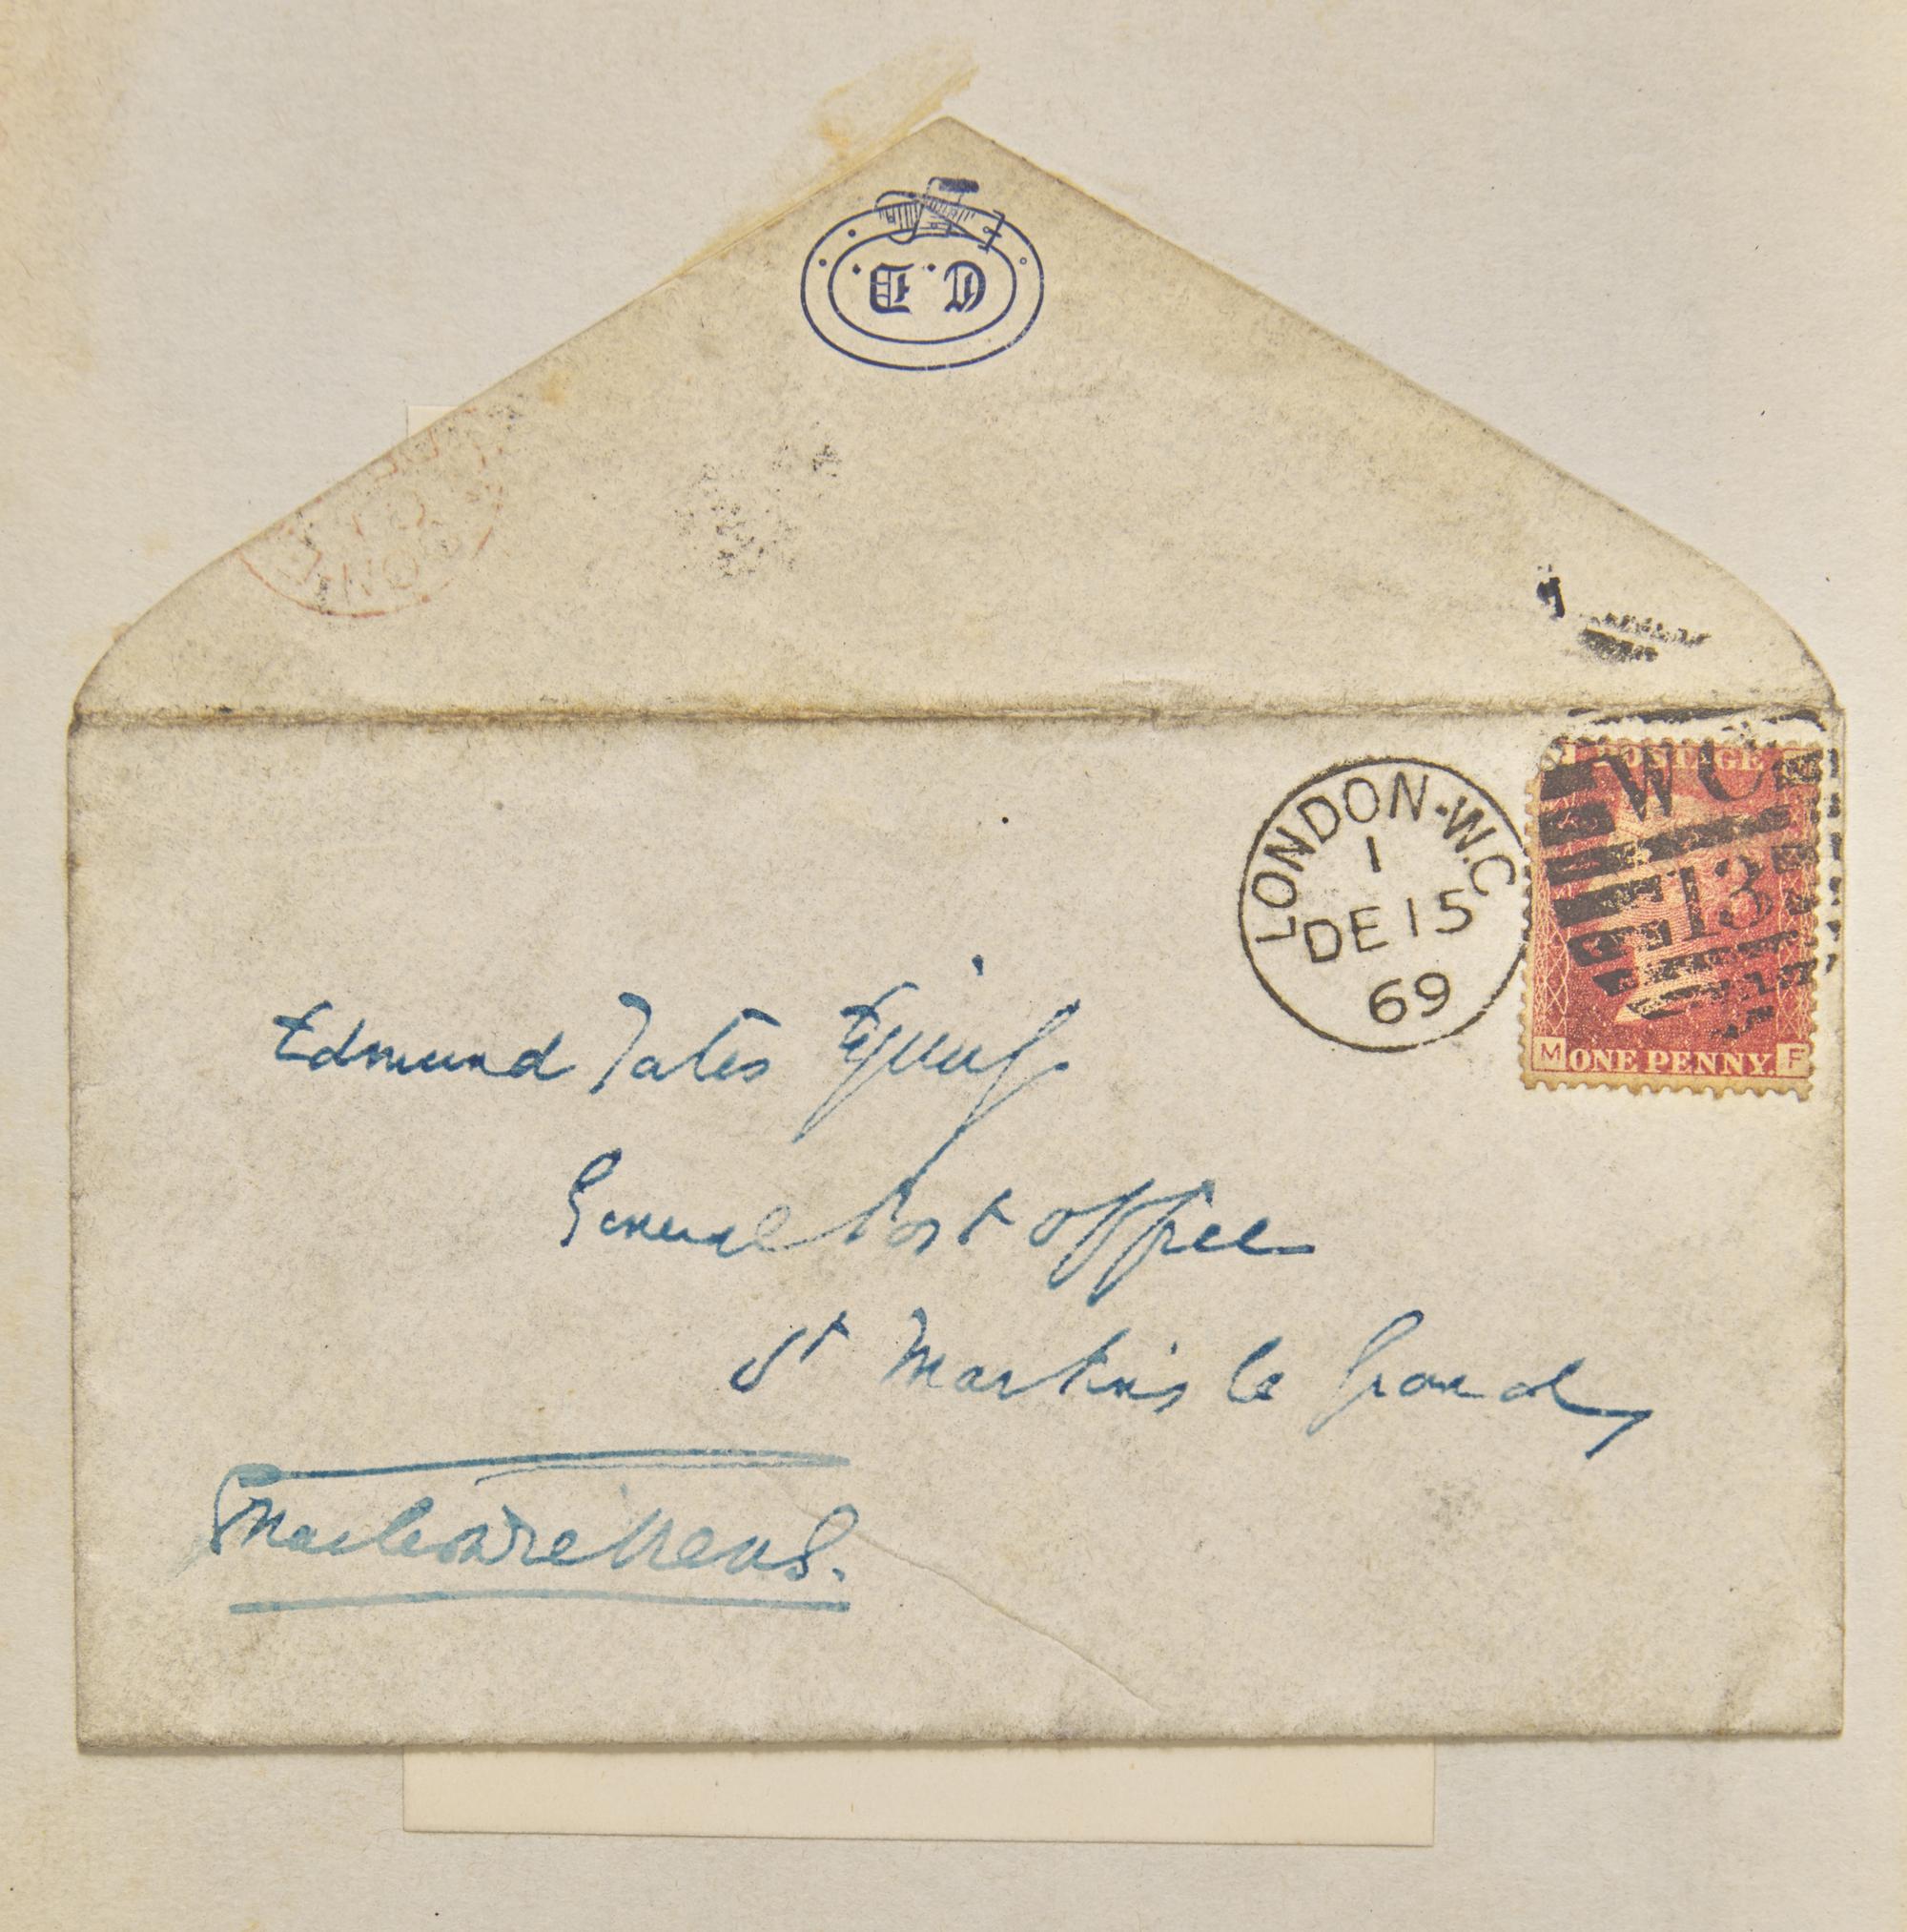 C.D.
LONDON-W.C
1
DE 15
69
POSTAGE
WC
13
M ONE PENNY. F
Edmund Yates Esquire
General Post Office
St Martins le Grand